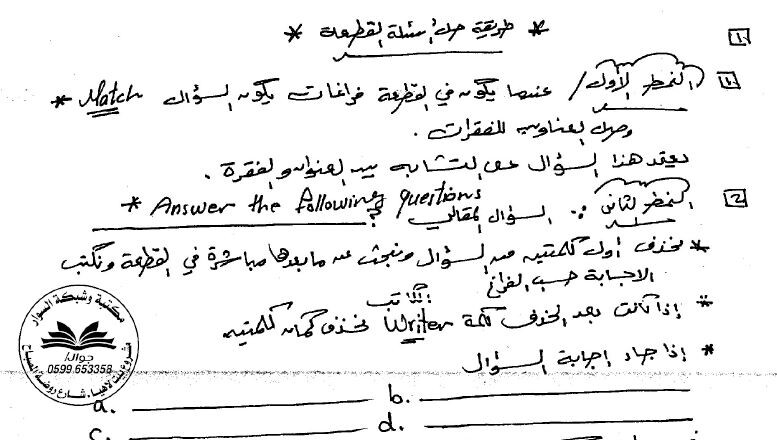 1.
* طريقة حل أسئلة القطعة *
1. النمط الأول / عندما يكون في القطعة فراغات يكون السؤال Match *
وصل العناوين للفقرات .
يعتمد هذا السؤال على التشابه بين العنوان والفقرة .
2. النمط الثاني : السؤال المقالي Answer the following questions *
* نحذف أول كلمتين من السؤال ونبحث عن ما بعدها مباشرة في القطعة ونكتب
الاجابة حسب الفراغ
الكاتب
* إذا كانت بعد الحذف كلمة Writer نحذف كمان كلمتين
* إذا جاء إجابة السؤال
a. b.
c. d.
مكتبة وشبكة السوار
جوال/
0599.653358
مشروع بيت لاهيا . شارع روضة الصباح